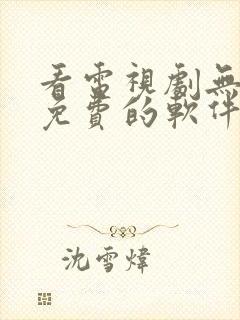 看電視劇無
免費的軟件
沈雪煒